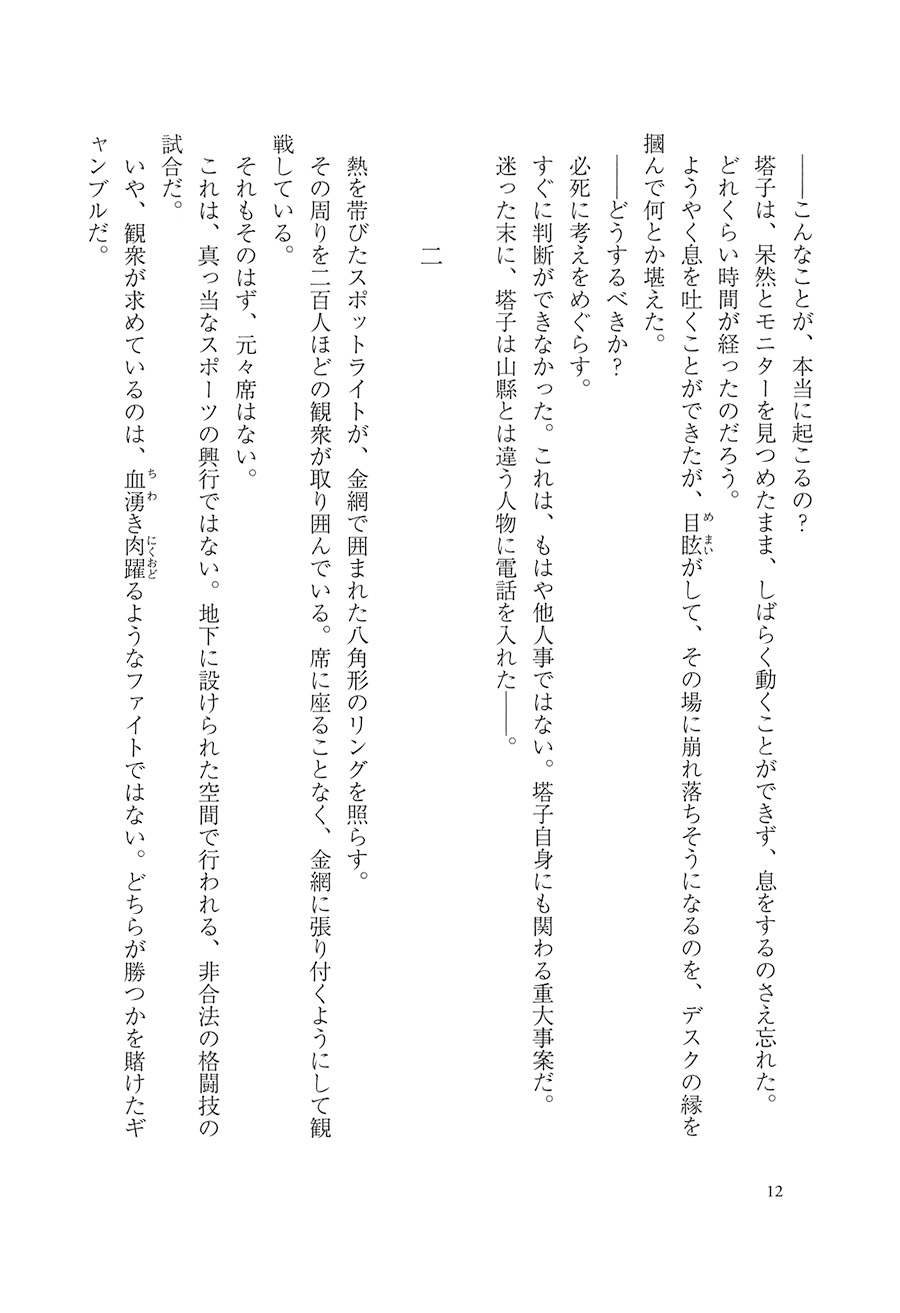 ――こんなことが、本当に起こるの？
塔子は、呆然とモニターを見つめたまま、しばらく動くことができず、息をするのさえ忘れた。
どれくらい時間が経ったのだろう。
ようやく息を吐くことができたが、目眩がして、その場に崩れ落ちそうになるのを、デスクの縁を
摑んで何とか堪えた。
――どうするべきか？
必死に考えをめぐらす。
すぐに判断ができなかった。これは、もはや他人事ではない。塔子自身にも関わる重大事案だ。
迷った末に、塔子は山縣とは違う人物に電話を入れた――。
二
熱を帯びたスポットライトが、金網で囲まれた八角形のリングを照らす。
その周りを二百人ほどの観衆が取り囲んでいる。席に座ることなく、金網に張り付くようにして観
戦している。
それもそのはず、元々席はない。
これは、真っ当なスポーツの興行ではない。地下に設けられた空間で行われる、非合法の格闘技の
試合だ。
いや、観衆が求めているのは、血湧き肉躍るようなファイトではない。どちらが勝つかを賭けたギ
ャンブルだ。
12